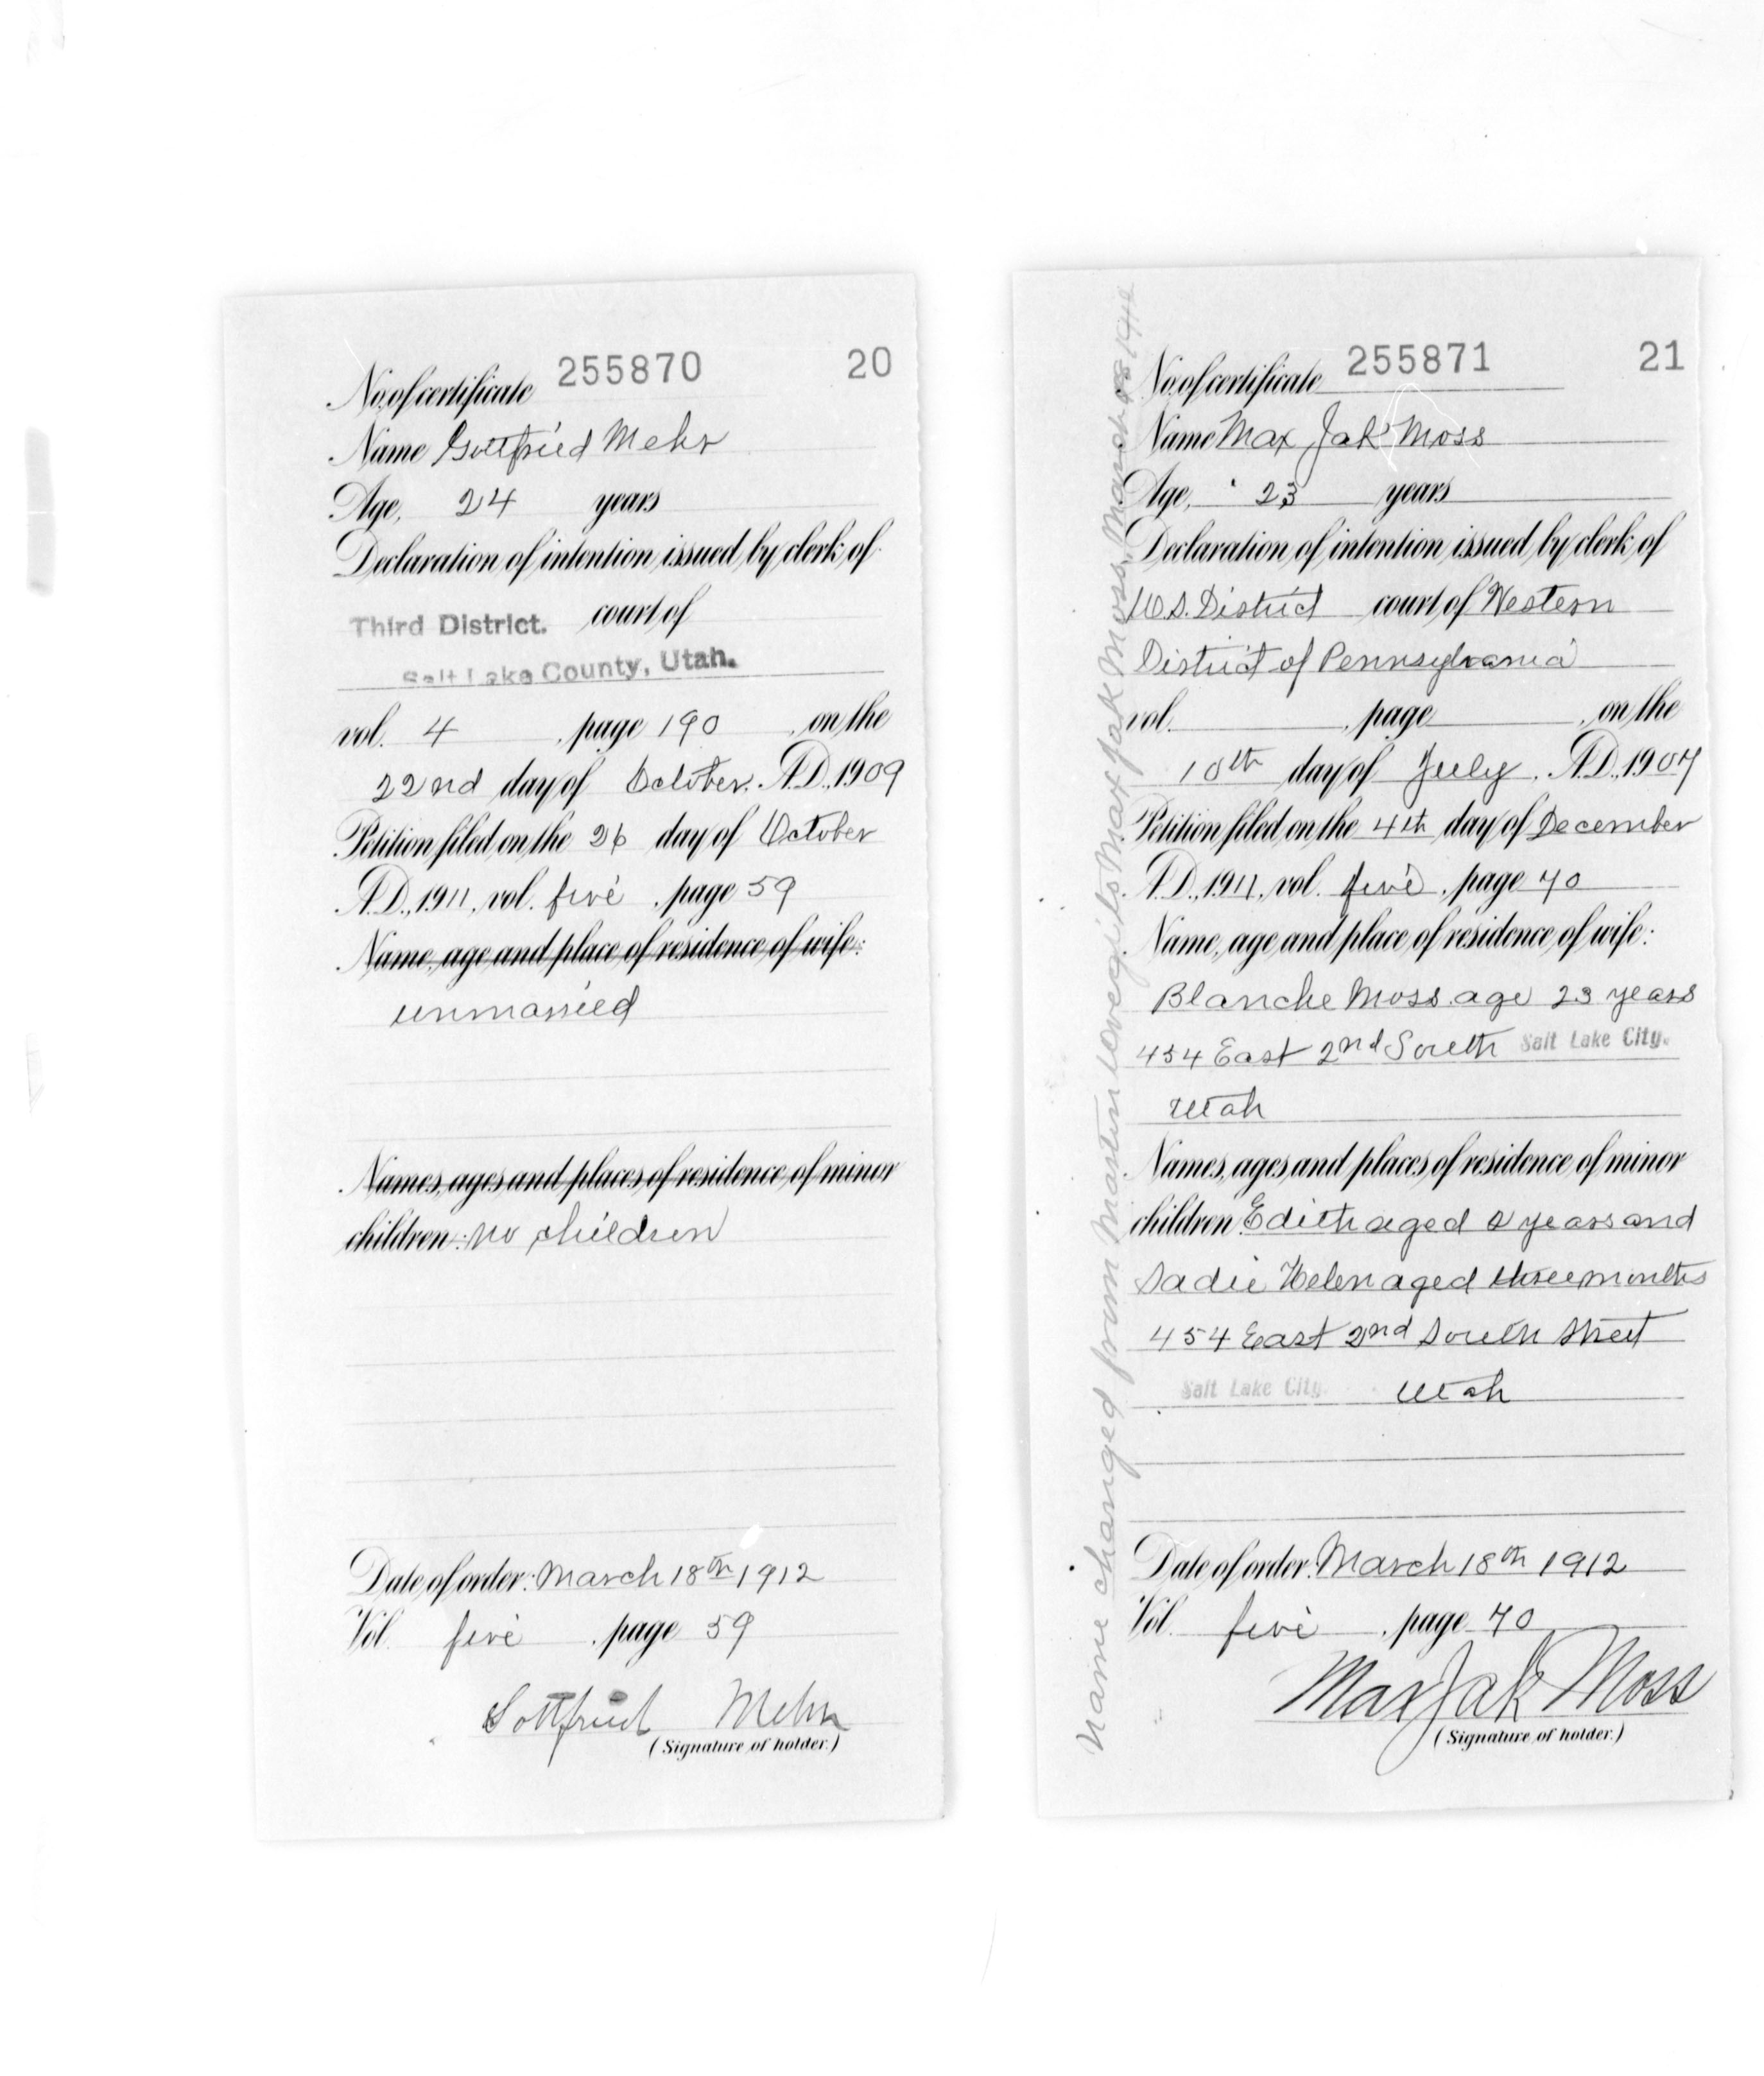 No. of certificate 255870 20
Name Gottfried Mehr
Age, 24 years
Declaration of intention issued by clerk of
Third District. court of
Salt Lake County, Utah.
vol. 4, page 190, on the
22nd day of October, A.D., 1909
Petition filed on the 26 day of October
A.D., 1911, vol. five, page 59
Name, age and place of residence of wife:
unmarried
Names, ages and places of residence of minor
children: no children
Date of order: March 18th 1912
Vol. five, page 59
Gottfried Mehr
(Signature of holder.)
No. of certificate 255871 21
Name Max Jak Moss
Age, 23 years
Declaration of intention issued by clerk of
U.S. District court of Western
District of Pennsylvania
vol. , page , on the
10th day of July, A.D., 1907
Petition filed on the 4th day of December
A.D., 1911, vol. five, page 70
Name, age and place of residence of wife:
Blanche Moss age 23 years
454 East 2nd South Salt Lake City.
Utah
Names, ages and places of residence of minor
children: Edith aged 2 years and
Sadie Helen aged three months
454 East 2nd South Street
Salt Lake City. Utah
Date of order: March 18th 1912
Vol. five, page 70
Max Jak Moss
(Signature of holder.)
Name changed from Martin to Max Jak Moss, March 1912